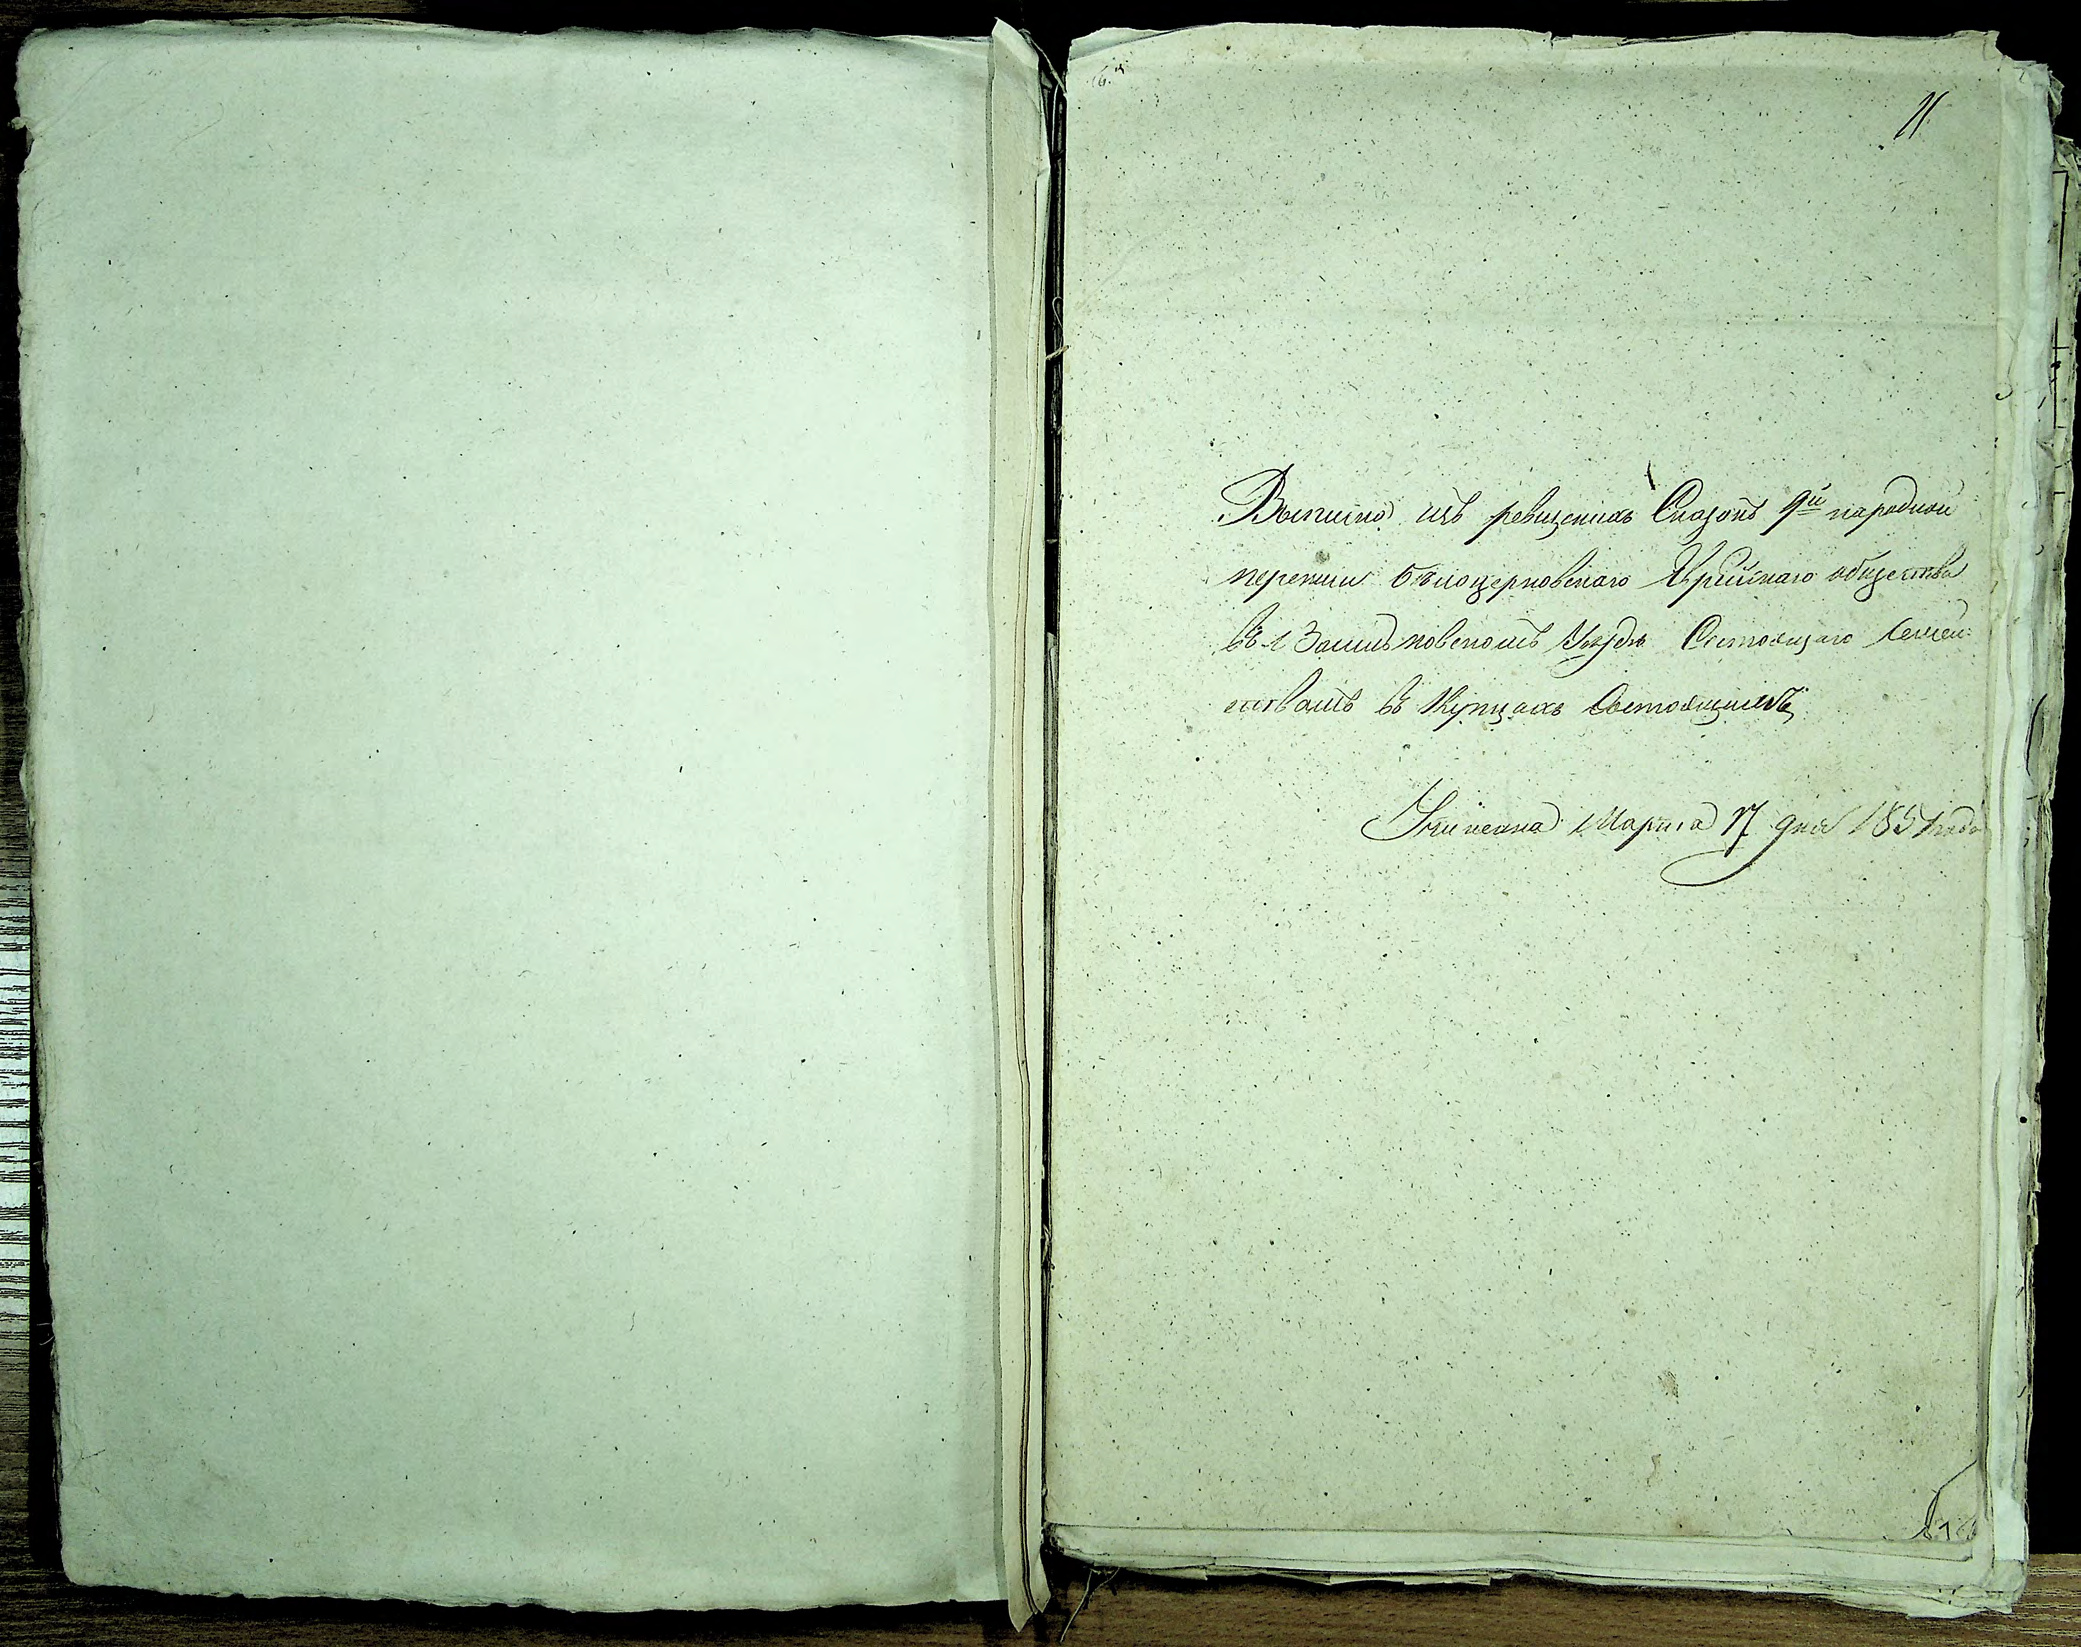 11.
Выписка изъ ревизскихъ Сказокъ 9й народной
переписи бѣлоцерковскаго Еврейскаго общества
въ Васильковскомъ Уѣздѣ Состоящаго Семей
ствамъ въ Купцахъ Состоящимъ
Учинена Марта 17 дня 1851 года